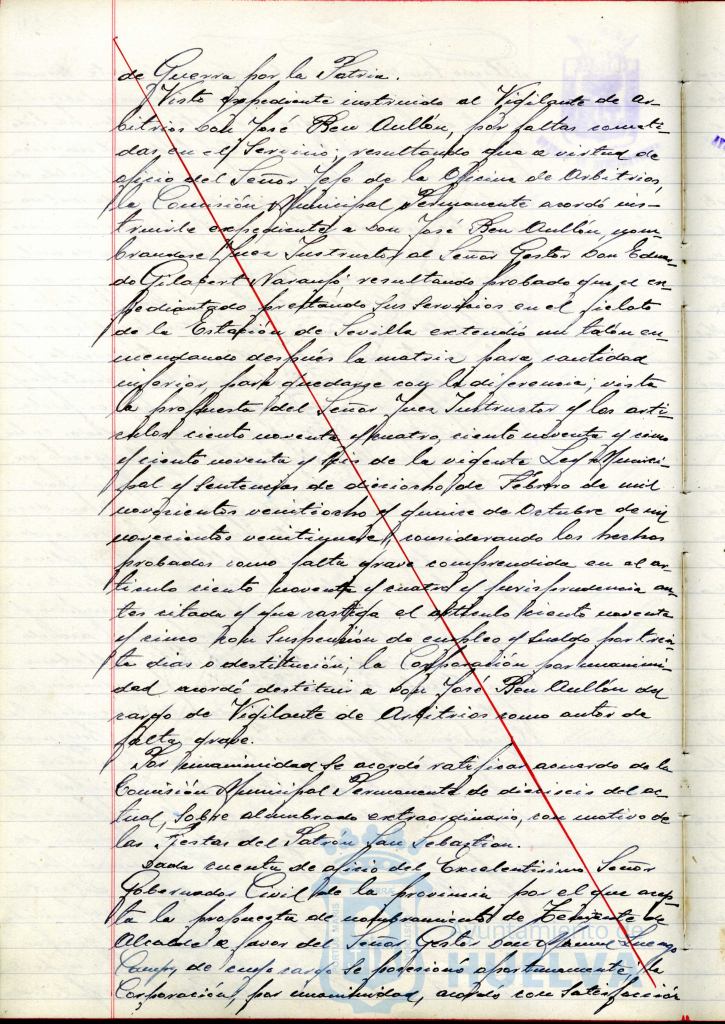 de Guerra por la Patria.
Visto expediente instruido al Vigilante de ar-
bitrios Don José Ben Aullón, por faltas cometi-
das en el Servicio; resultando que a virtud de
oficio del Señor Jefe de la Oficina de Arbitrios,
la Comisión Municipal Permanente acordó ins-
truirle expediente a Don José Ben Aullón, nom-
brandose Juez Instructor al Señor Gestor Don Eduar-
do Gilabert Naranjo; resultando probado que el ex-
pedientado prestando sus servicios en el fielato
de la Estación de Sevilla extendió un talón en-
mendando después la matriz para cantidad
inferior, para quedarse con la diferencia; vista
la propuesta del Señor Juez Instructor y los arti-
culos ciento noventa y cuatro, ciento noventa y cinco
y ciento noventa y seis de la vigente Ley Munici-
pal y Sentencias de dieciocho de Febrero de mil
novecientos veintiocho y quince de Octubre de mil
novecientos veintinueve, considerando los hechos
probados como falta grave comprendida en el ar-
ticulo ciento noventa y cuatro y jurisprudencia an-
tes citada y que castiga el articulo ciento noventa
y cinco con Suspensión de empleo y Sueldo por trein-
ta dias o destitución; la Corporación por unanimi-
dad acordó destituir a Don José Ben Aullón del
cargo de Vigilante de Arbitrios como autor de
falta grave.
Por unanimidad se acordó ratificar acuerdo de la
Comisión Municipal Permanente de dieciseis del ac-
tual, sobre alumbrado extraordinario, con motivo de
las Fiestas del Patrón San Sebastian.
Dada cuenta de oficio del Excelentisimo Señor
Gobernador Civil de la provincia por el que acep-
ta la propuesta de nombramiento de Teniente de
Alcalde a favor del Señor Gestor Don Manuel Luengo
de cuyo cargo se posesionó oportunamente; la
Corporación, por unanimidad, acordó con Satisfacción
Ayuntamiento de
HUELVA